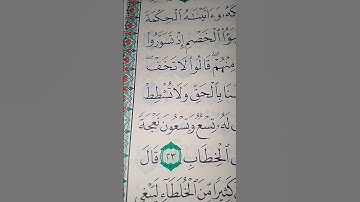 وَءَاتَيْنَٰهُ ٱلْحِكْمَةَ
ٱلْخَصْمِ إِذْ تَسَوَّرُوا۟
مِنْهُمْ ۖ قَالُوا۟ لَا تَخَفْ ۖ
بِٱلْحَقِّ وَلَا تُشْطِطْ
لَهُۥ تِسْعٌ وَتِسْعُونَ نَعْجَةً
ٱلْخِطَابِ ٢٣ قَالَ
كَثِيرًا مِّنَ ٱلْخُلَطَآءِ لَيَبْغِى